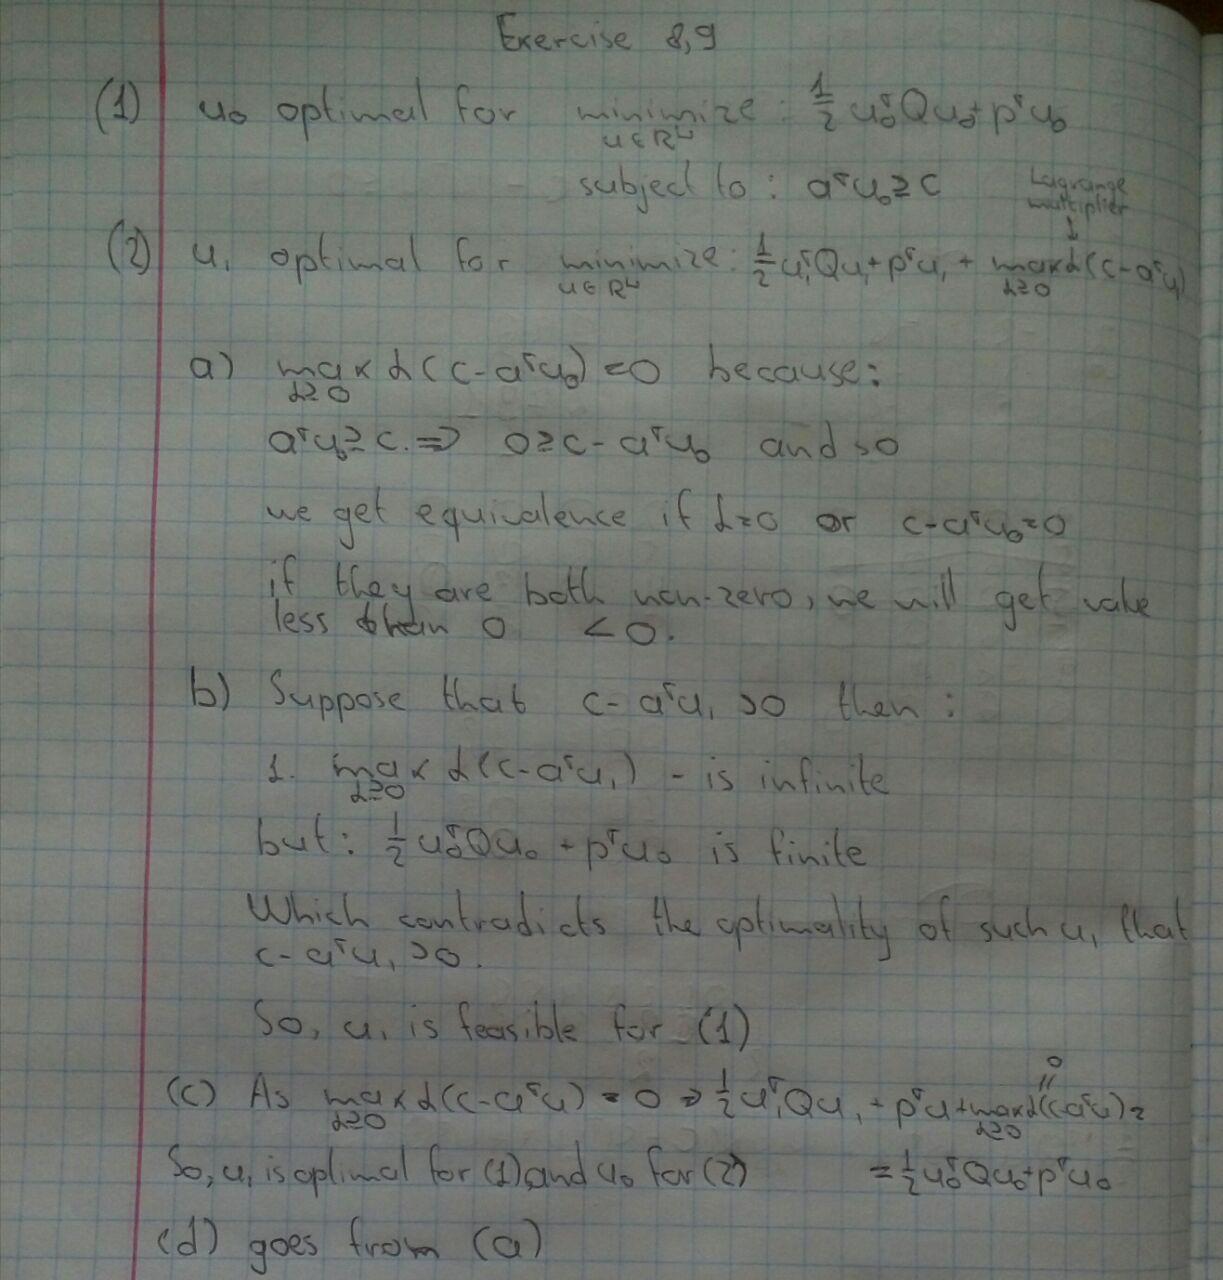 Exercise 8,9
(1) u₀ optimal for minimize: ½ u₀ᵀQu₀ + pᵀu₀
u∈Rᴸ
subject to: aᵀu₀ ≥ c
Lagrange multiplier ↓
(2) u₁ optimal for minimize: ½ u₁ᵀQu₁ + pᵀu₁ + max α(c-aᵀu₁)
u∈Rᴸ α≥0
a) max α(c-aᵀu₀) = 0 because:
α≥0
aᵀu₀ ≥ c. ⇒ 0 ≥ c - aᵀu₀ and so
we get equivalence if α=0 or c-aᵀu₀=0
if they are both non-zero, we will get value
less than 0 <0.
b) Suppose that c-aᵀu₁ >0 then:
1. max α(c-aᵀu₁) - is infinite
α≥0
but: ½ u₀ᵀQu₀ + pᵀu₀ is finite
Which contradicts the optimality of such u₁ that
c-aᵀu₁ >0.
So, u₁ is feasible for (1)
(c) As max α(c-aᵀu) = 0 ⇒ ½ u₁ᵀQu₁ + pᵀu + max α(c-aᵀu) =
α≥0 α≥0
0
So, u₁ is optimal for (1) and u₀ for (2) = ½ u₀ᵀQu₀ + pᵀu₀
(d) goes from (a)